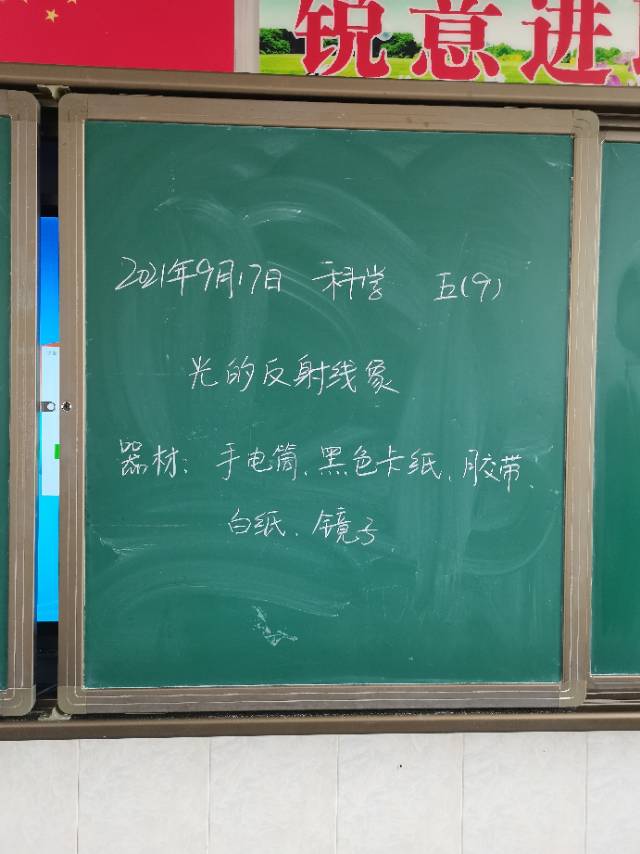 锐意进
2021年9月17日 科学 五(9)
光的反射线象
器材:手电筒、黑色卡纸、胶带、
白纸、镜子